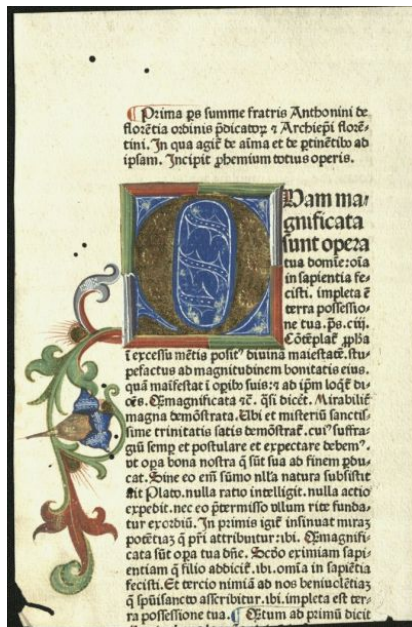 Prima ps summe fratris Anthonini de
florētia ordinis p̄dicatoꝝ ⁊ Archiep̄i florē-
tini. In qua agit̄ de aīma et de ꝑtinētibꝰ ad
ipsam. Incipit ꝓhemium totius operis.
Quam ma-
gnificata
sunt opera
tua domīe: oīa
in sapientia fe-
cisti. impleta ē
terra possessio-
ne tua. p̄s. ciij.
Cōtēplat̄ ꝓph̄a
ī excessu mētis positꝰ diuinā maiestatē. stu-
pefactus ad magnitudinem bonitatis eius.
quā maīfestat ī oꝑibꝰ suis: ⁊ ab ip̄m loqt̄ di-
cēs. Qm̄agnificata ⁊c̄. q̄si dicēt. Mirabilit̄
magna demōstrata. Ubi et misteriū sanctis-
sime trinitatis satis demōstrat̄. cuiꝰ suffra-
giū semꝑ et postulare et expectare debemꝰ.
vt oꝑa bona nostra q̄ sūt sua ab finem ꝑdu-
cat. Sine eo em̄ sūmo nll̄a natura subsistit
ait Plato. nulla ratio intelligit. nulla actio
expedit. nec eo p̄termisso vllum rite funda-
tur exordiū. In primis igit̄ insinuat miraꝫ
potētiaꝫ q̄ pr̄i attribuitur: ibi. Qm̄agnifi-
cata sūt oꝑa tua dn̄e. Scd̄o eximiam sapi-
entiam q̄ filio addicit̄. ibi. omīa in sapiētia
fecisti. Et tercio nimiā ad nos beniuolētiaꝫ
q̄ spūisancto asscribitur. ibi. impleta est ter-
ra possessione tua. Q̄tum ab primū dicit